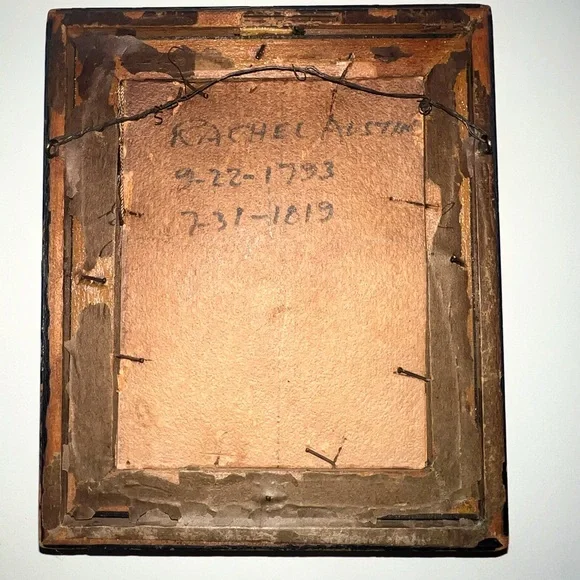 RACHEL AUSTIN
9-22-1793
7-31-1819